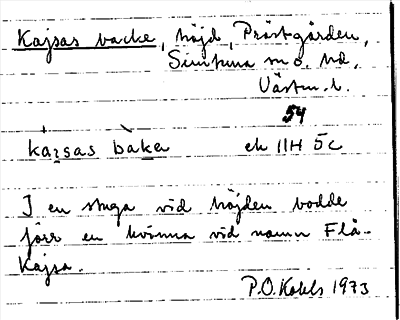 Kajsas backe, höjd, Prästgården,
Simtuna sn o. hd,
Västm. l.
54
kàʒsas bàka ek 11H 5c
I en stuga vid höjden bodde
förr en kvinna vid namn Flå-
Kajsa.
P.O. 1973